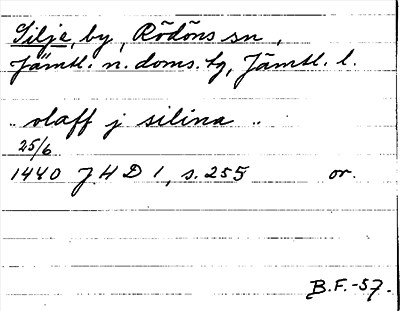 Silje, by, Rödöns sn,
Jämtl. n. doms. tg, Jämtl. l.
.. olaff j silina ..
25/6
1440 JHD 1, s. 255 or.
B.F.-57.